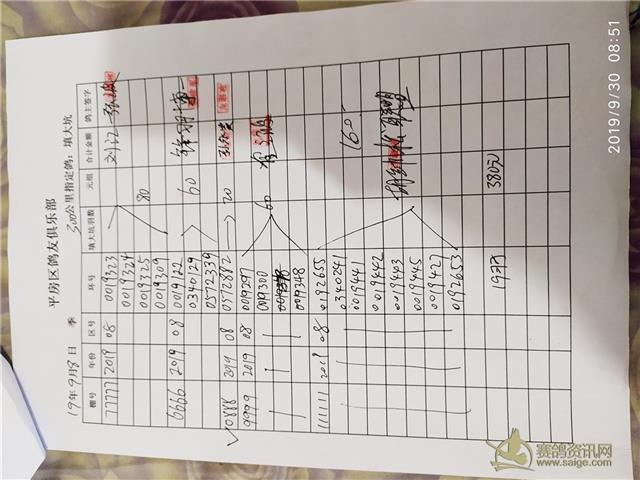 平房区鸽友俱乐部
19年9月8日 季 300公里指定鸽：填大坑
棚号 年份 区号 环号 填大坑羽数 元组 合计金额 鸽主签字
77777 2019 08 0019323
0019324
0019325 80
0019309
6666 2019 08 0019122
0340129 60
0572339
0888 2019 08 0572882 20
9999 2019 08 0019297
0019300 60
0019348
111111 2019 08 0192655
0340241 160
0019441
0019442
0019443
0019445
0019427
0192653
19羽 380元
2019/9/30 08:51
赛鸽资讯网
www.saige.com